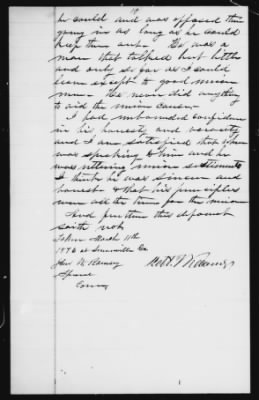 19
he could and was opposed to
going in as long as he could
keep them out. He was a
man that talked but little
and only so far as I could
learn except to good union
men. He never did anything
to aid the union cause.
I had unbounded confidence
in his honesty and veracity
and I am satisfied that when
was speaking to him and he
was uttering union sentiments
I think he was sincere and
honest & that his principles
were all the time for the union
And further this deponent
saith not.
Taken March 11th
187 at Ga
Jno. W. Ramsey
Special
Comr